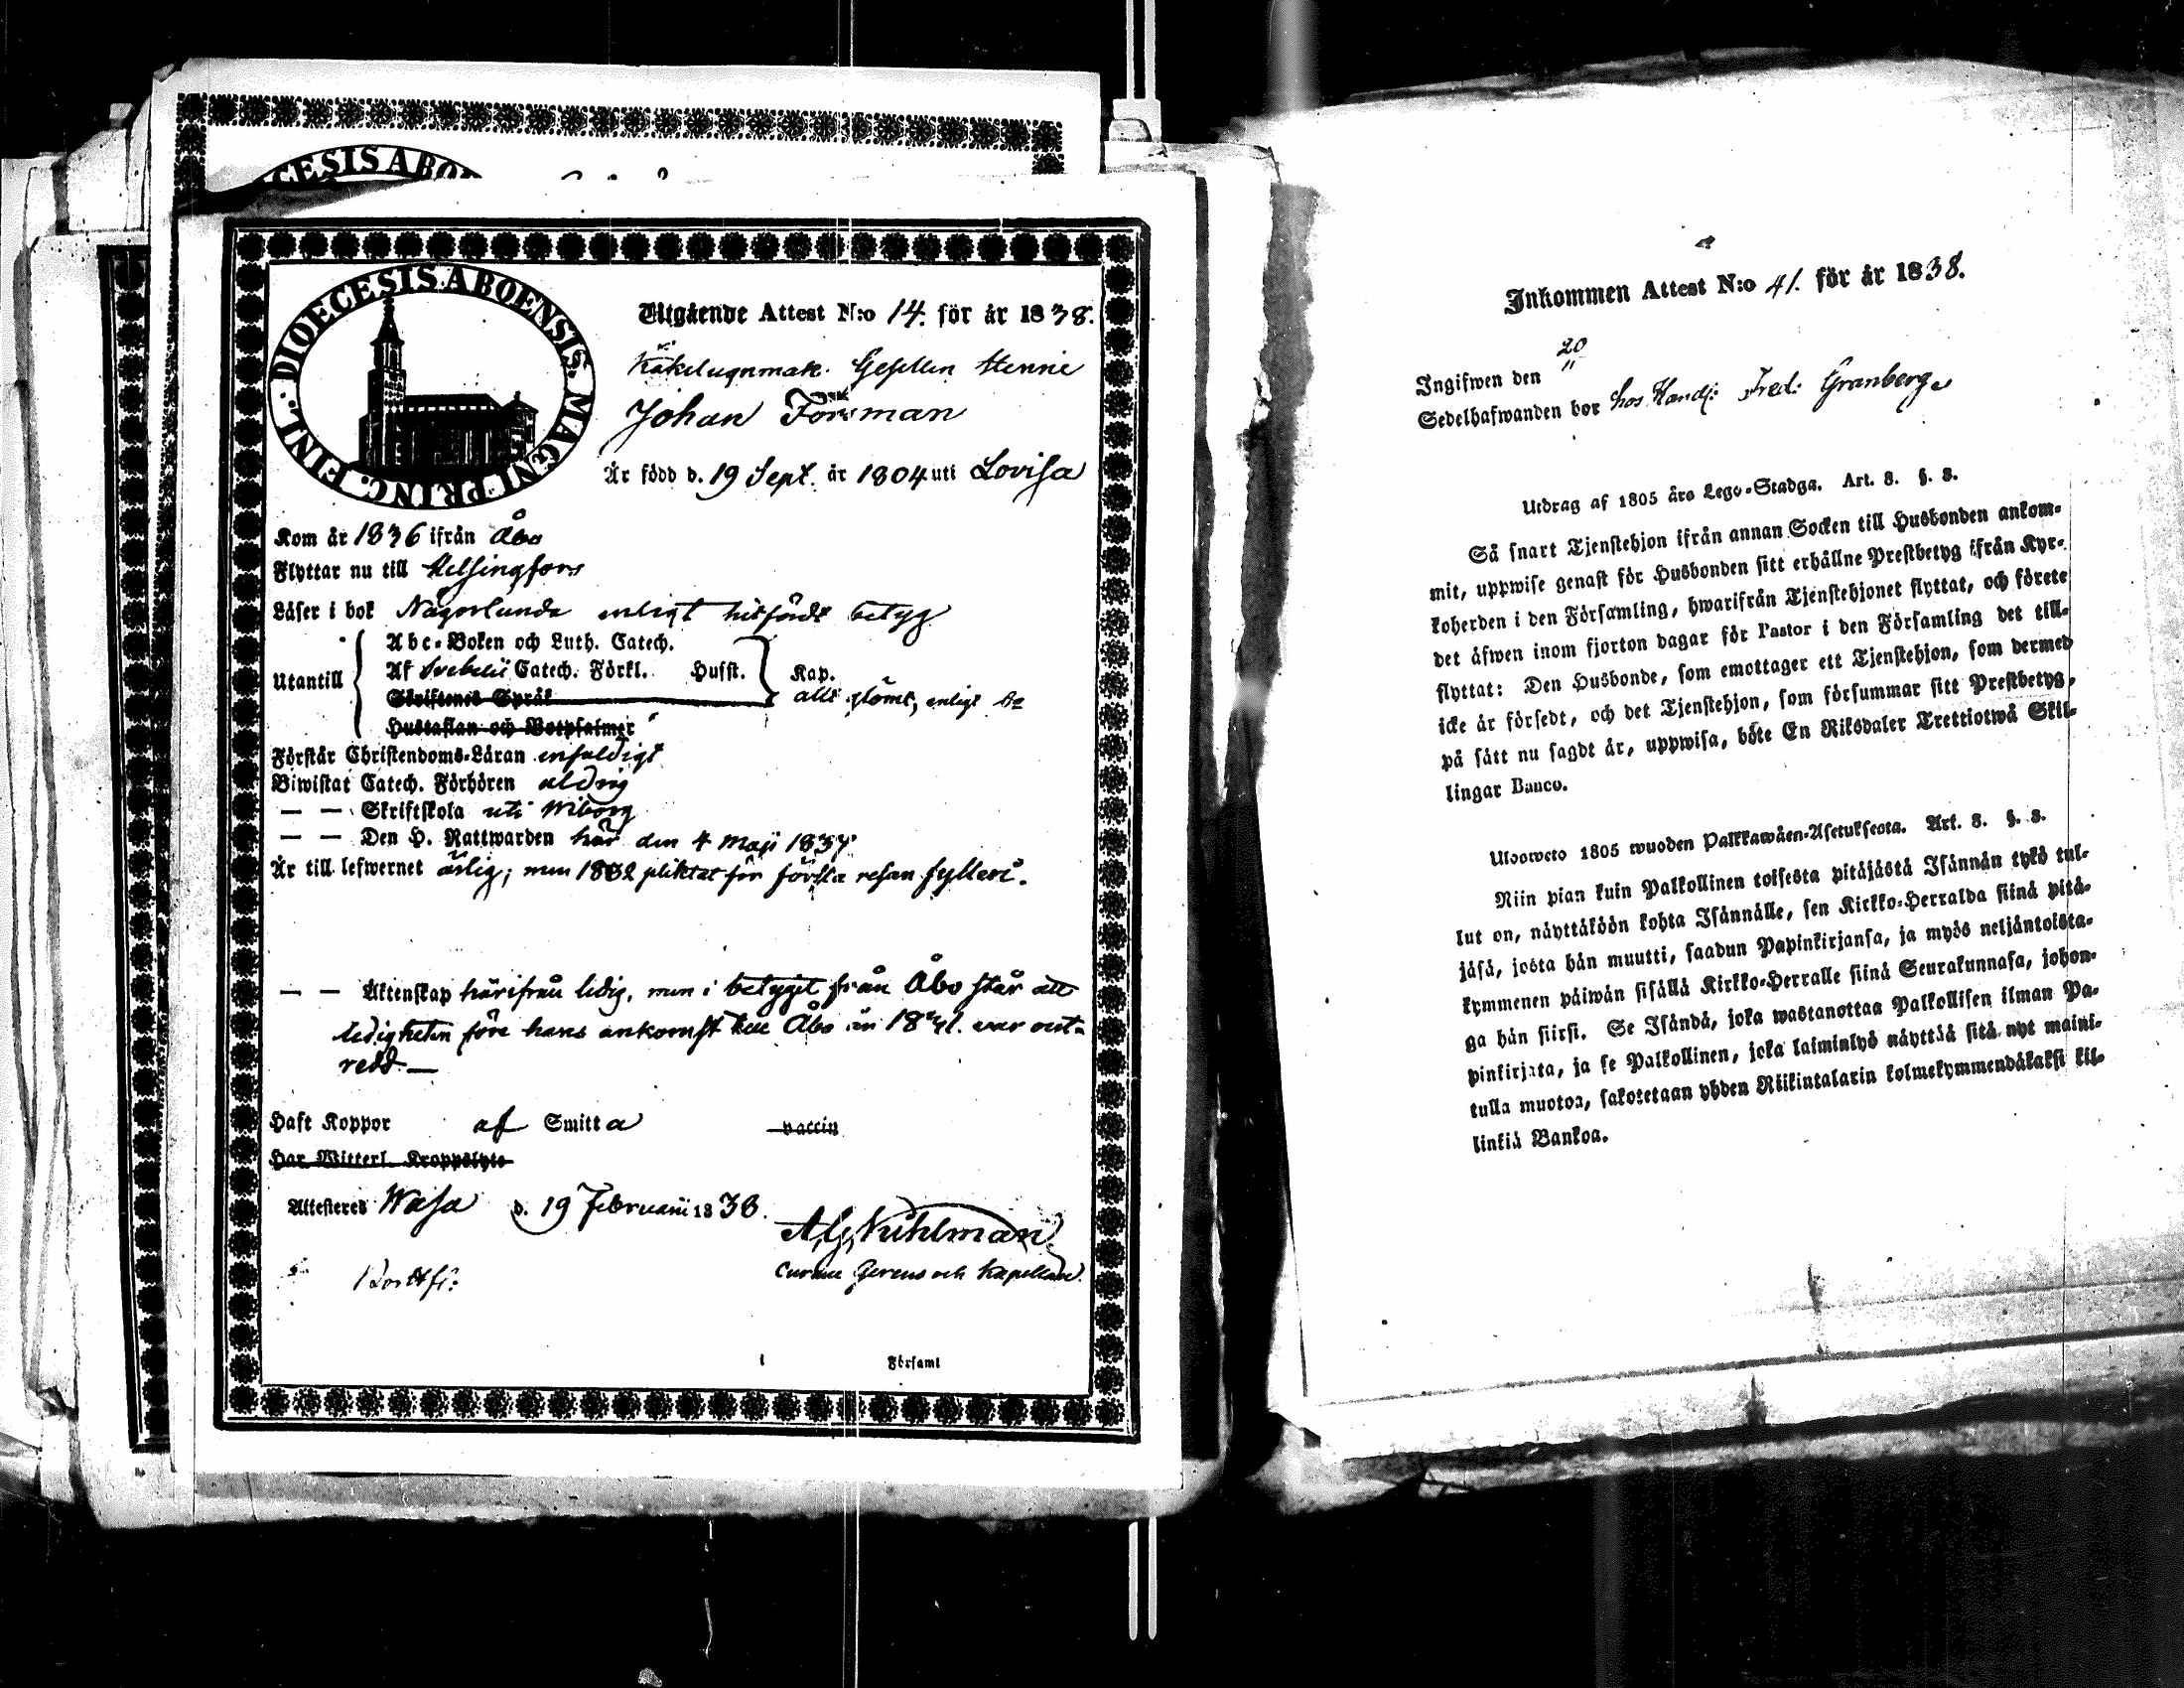 CESIS ABO
DIOECESIS ABOENSIS. MAGNI PRINC. FINL.
Utgående Attest N:o 14. för år 1838.
Kakelugnmak. Gesellen Henric
Johan Forsman
Är född d. 19 Sept. år 1804 uti Lovisa
Kom år 1836 ifrån Åbo
Flyttar nu till Helsingfors
Läser i bok Någorlunda enligt hitförde betyg
Utantill
Abc-Boken och Luth. Catech.
Af Svebelii Catech. Förkl. Husst. Kap.
Skriftenes Språk allt glömt, enligt be
Hustaflan och Botpsalmer
Förstår Christendoms-Läran enfaldigt
Biwistat Catech. Förhören aldrig
— — Skriftskola uti Wiborg
— — Den H. Nattwarden här den 4 Maji 1837
Är till lefwernet ärlig; men 1832 pliktat för första resan fylleri.
— — Äktenskap härifrån ledig, men i betyget från Åbo står att
ledigheten före hans ankomst till Åbo år var out-
redd —
Haft Koppor af Smitta vaccin
Har Witterl. Kroppslyte
Attesteres Wasa d. 19 Februarii 1838.
Curam Gerens och Kapellan
i Församl
Inkommen Attest N:o 41. för år 1838.
Ingifwen den 20
Sedelhafwanden bor hos Handl: Fred: Granberg
Utdrag af 1805 års Lego-Stadga. Art. 8. §. 8.
Så snart Tjenstehjon ifrån annan Socken till Husbonden ankom-
mit, uppwise genast för Husbonden sitt erhållne Prestbetyg ifrån Kyr-
koherden i den Församling, hwarifrån Tjenstehjonet flyttat, och förete
det äfwen inom fjorton dagar för Pastor i den Församling det till-
flyttat: Den Husbonde, som emottager ett Tjenstehjon, som dermed
icke är försedt, och det Tjenstehjon, som försummar sitt Prestbetyg,
på sätt nu sagdt är, uppwisa, böte En Riksdaler Trettiotwå Skil-
lingar Banco.
Ulosweto 1805 wuoden Palkkawäen-Asetuksesta. Art. 8. §. 8.
Niin pian kuin Palkollinen toisesta pitäjästä Isännän tykö tul-
lut on, näyttäköön kohta Isännälle, sen Kirkko-Herralda siinä pitä-
jäsä, josta hän muutti, saadun Papinkirjansa, ja myös neljäntoista-
kymmenen päiwän sisällä Kirkko-Herralle siinä Seurakunnasa, johon-
ga hän siirsi. Se Isändä, joka wastanottaa Palkollisen ilman Pa-
pinkirjata, ja se Palkollinen, joka laiminlyö näyttää sitä nyt maini-
tulla muotoa, sakotetaan yhden Riikintalarin kolmekymmendäkaksi kil-
linkiä Bankoa.